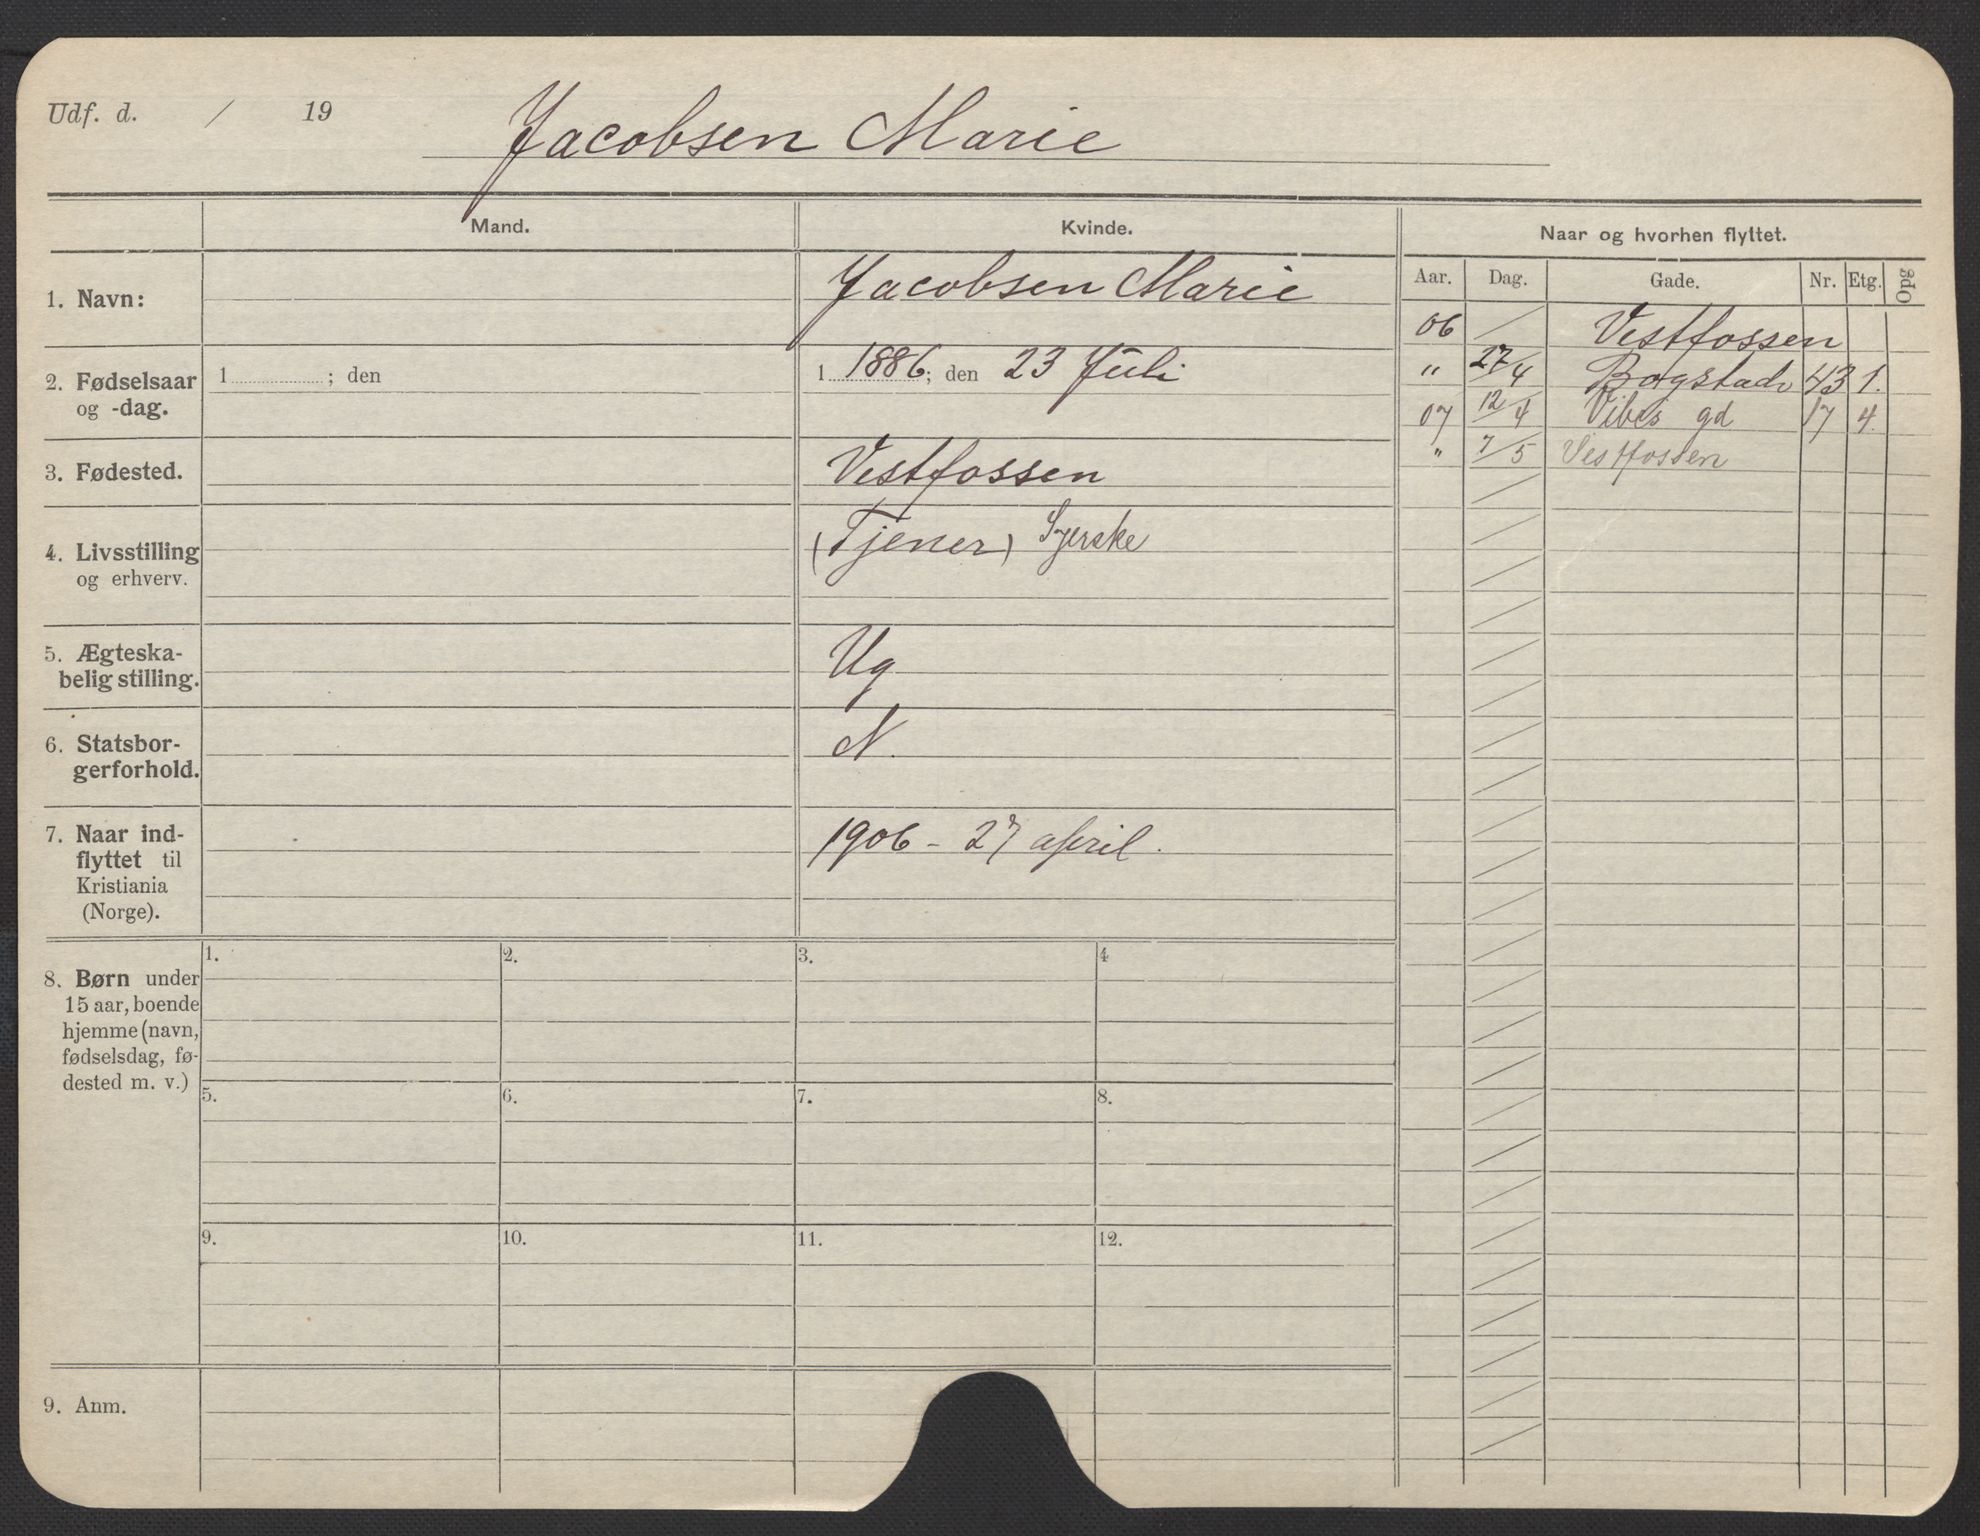 Udf. d. / 19 Jacobsen Marie
Mand. Kvinde. Naar og hvorhen flyttet.
Aar. Dag. Gade. Nr. Etg. Opg
1. Navn: Jacobsen Marie
2. Fødselsaar og -dag. 1 ; den
1 1886; den 23 Juli
3. Fødested. Vestfossen
4. Livsstilling og erhverv. (Tjener) Syerske
5. Ægteska-
belig stilling. Ug
6. Statsbor-
gerforhold. N.
7. Naar ind-
flyttet til
Kristiania
(Norge). 1906 - 27 april.
8. Børn under
15 aar, boende
hjemme (navn,
fødselsdag, fø-
dested m. v.)
1. 2. 3. 4
5. 6. 7. 8.
9. 10. 11. 12.
9. Anm.
06 / Vestfossen
" 27/4 Bogstadv 43 1.
07 12/4 Vibes gd 17 4.
" 7/5 Vestfossen